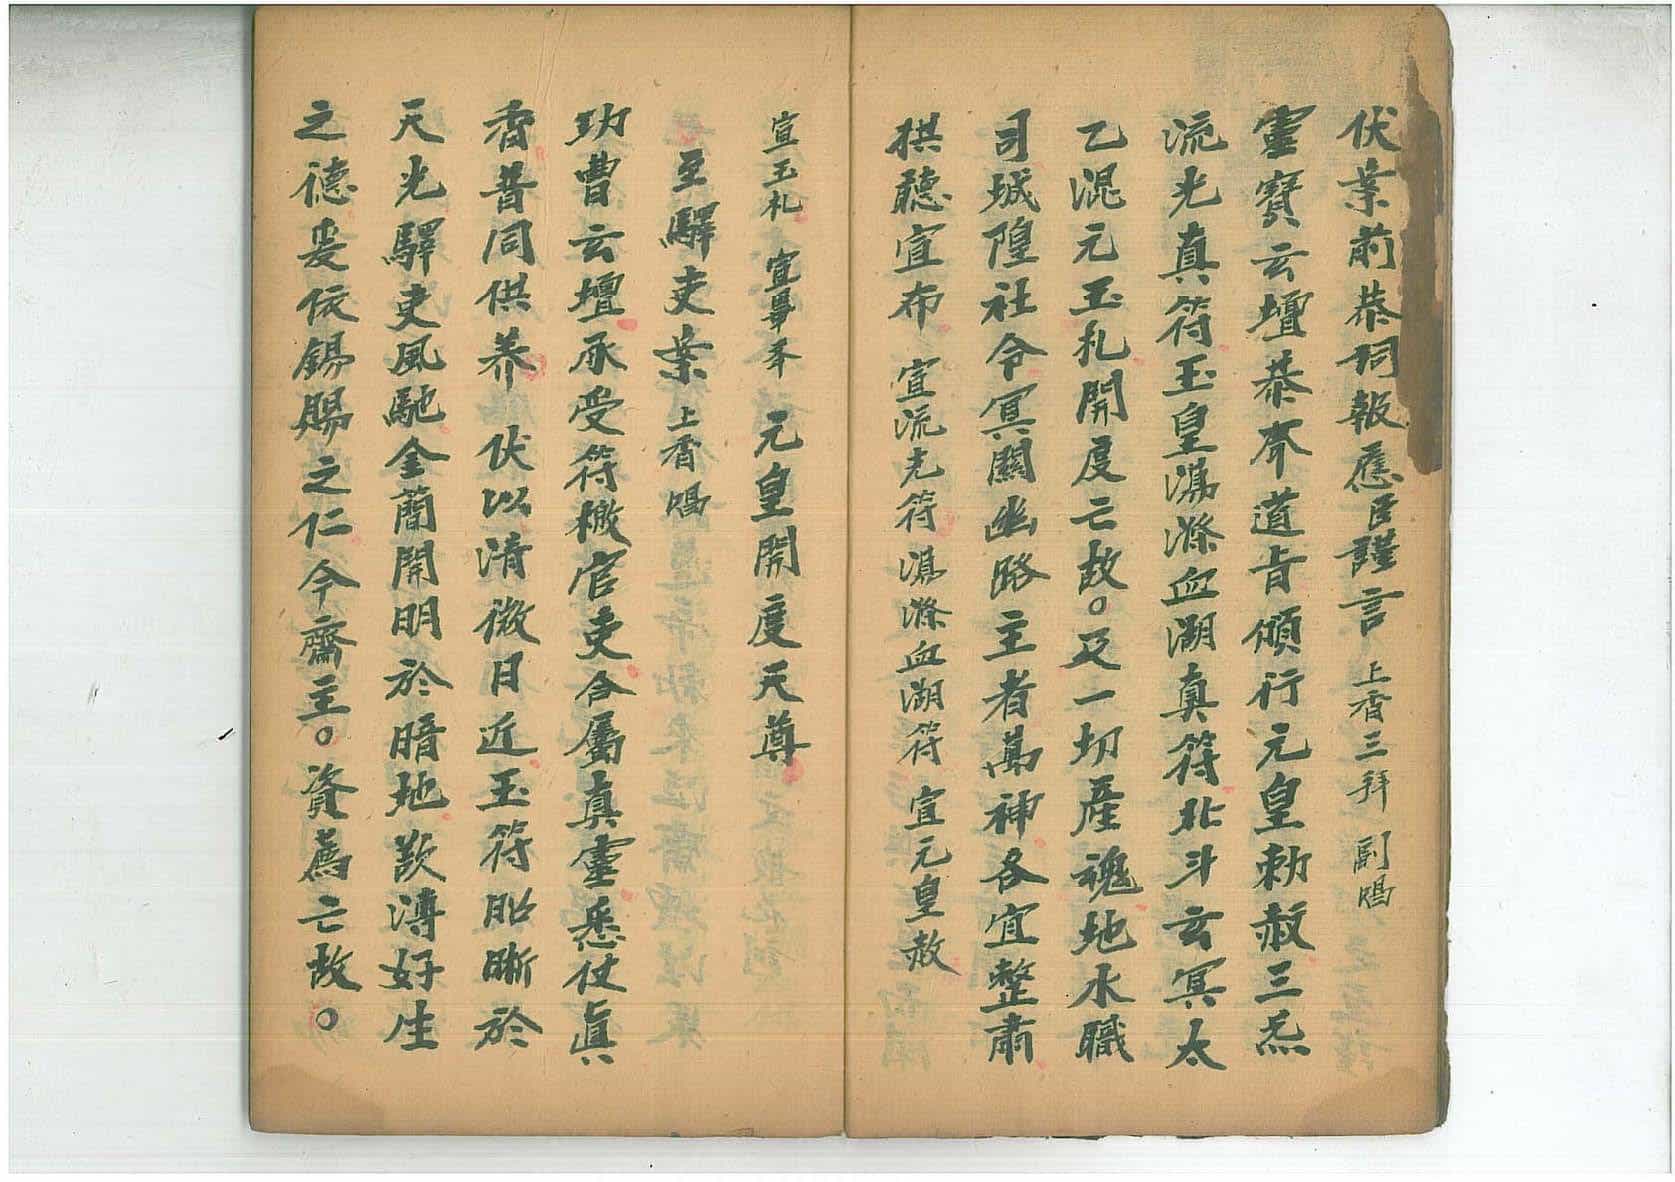 伏業前恭祠報應臣謹言 上香三拜 副
靈寶玄壇恭奉道旨頒行元皇勅赦三炁
流光真符玉皇蕩滌血湖真符北斗玄冥太
乙混元玉札開度亡故。及一切產魂地水職
司城隍社令冥關幽路主者萬神各宜整肅
拱聽宣布 宣流光符 蕩滌血湖符 宣元皇赦
宣玉札 宣畢奉 元皇開度天尊
至驛吏案 上香
功曹玄壇承受符檄官吏合屬真靈悉仗真
香普同供养 伏以清微日近玉符昭晰於
天光驛吏風馳金蘭開明於暗地歎溥好生
之德爰依錫賜之仁今齋主。資薦亡故。